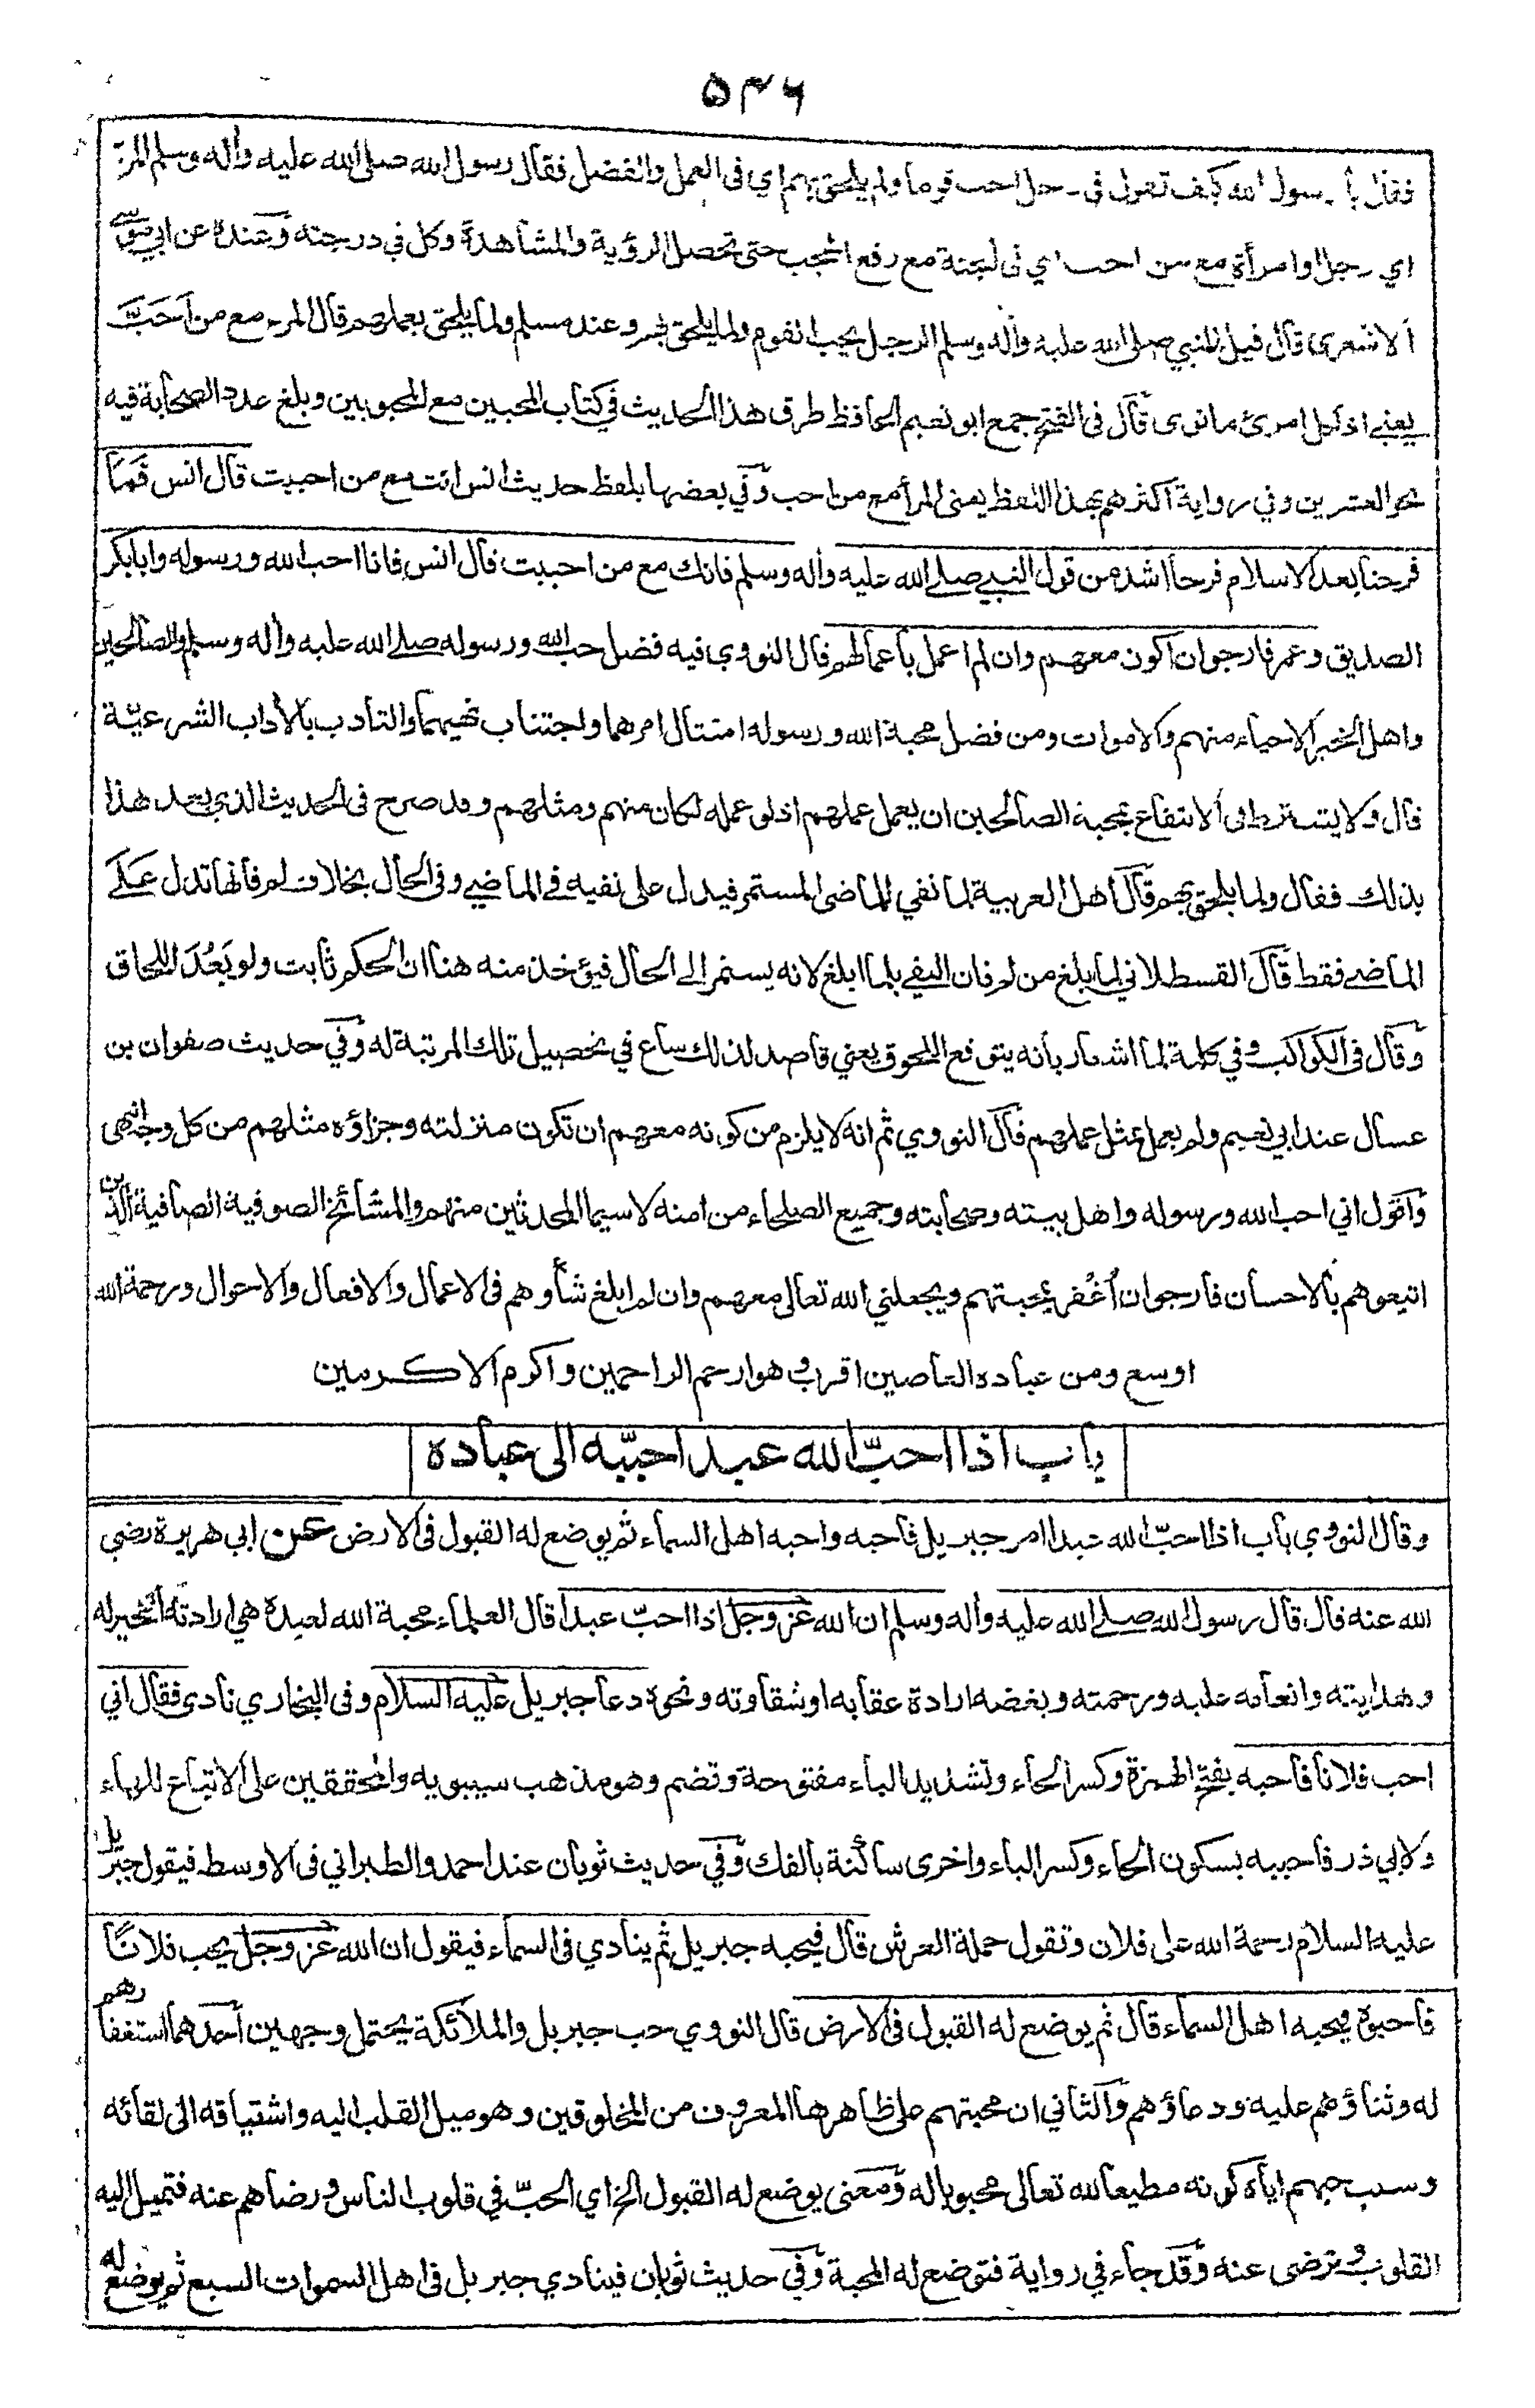 ۵۴۶
فقال يا رسول الله كيف تقول فى رجل احب قوما ولم يلحق بهم اي فى العمل والفضل فقال رسول الله صلى الله عليه وأله وسلم المرء
اي رجل او امرأة مع من احب اي فى الجنة مع رفع الحجب حتى تحصل الرؤية والمشاهدة وكل في درجته وعنده عن ابي موسى
الاشعرى قال قيل للنبي صلى الله عليه وأله وسلم الرجل يحب القوم ولما يلحق بهم وعند مسلم ولما يلحق بعملهم قال المرء مع من أَحَبَّ
يعنے اذ لكل امرئ ما نوى قال فى الفتح جمع ابو نعيم الحافظ طرق هذا الحديث في كتاب المحبين مع المحبوبين وبلغ عدد الصحابة فيه
نحو العشرين وفي رواية اكثرهم بهذا اللفظ يعنى المرأ مع من احب وفي بعضها بلفظ حديث انس انت مع من احببت قال انس فَمَا
فرحنا بعد الاسلام فرحا اشد من قول النبي صلے الله عليه وأله وسلم فانك مع من احببت قال انس فانا احب الله ورسوله وابابكر
الصديق وعمر فارجو ان اكون معهم وان لم اعمل بأعمالهم قال النووي فيه فضل حب الله ورسوله صلے الله عليه وأله وسلم والصالحين
واهل الخير الاحياء منهم والاموات ومن فضل محبة الله ورسوله امتثال امرهما واجتناب نهيهما والتأدب بالأداب الشرعيّة
قال ولا يشترط فى الانتفاع بمحبة الصالحين ان يعمل عملهم اذ لو عمله لكان منهم ومثلهم وقد صرح فى الحديث الذي بعد هذا
بذلك فقال ولما يلحق بهم قال اهل العربية لما نفي للماضى المستمر فيدل على نفيه فے الماضي وفى الحال بخلاف لم فانها تدل عَلَے
الماضے فقط قال القسطلاني لما ابلغ من لم فان النفي بلما ابلغ لانه يستمر الى الحال فيؤخذ منه هنا ان الحكم ثابت ولو بَعُدَ اللحاق
وقال فى الكواكب وفي كلمة لما اشعار بأنه يتوقع اللحوق يعني قاصد لذلك ساع في تحصيل تلك المرتبة له وفي حديث صفوان بن
عسال عند ابي نعيم ولم يعمل بمثل عملهم قال النووي ثم انه لا يلزم من كونه معهم ان تكون منزلته وجزاؤه مثلهم من كل وجه انتهى
وأقول اني احب الله ورسوله واهل بيته وصحابته وجميع الصلحاء من امته لاسيما المحدثين منهم والمشائخ الصوفية الصافية الذين
اتبعوهم بالاحسان فأرجو ان اُغْفر بمحبتهم ويجعلني الله تعالى معهم وان لم ابلغ شأوهم فى الاعمال والافعال والاحوال ورحمة الله
اوسع ومن عباده العاصين اقرب وهو ارحم الراحمين واكرم الاكرمين
باب اذا احبّ الله عبدا حبّبه الى عباده
وقال النووي باب اذا احبّ الله عبدا امر جبريل فأحبه واحبه اهل السماء ثم يوضع له القبول فى الارض عن ابي هريرة رضي
الله عنه قال قال رسول الله صلے الله عليه وأله وسلم ان الله عز وجل اذا احبّ عبدا قال العلماء محبة الله لعبده هي ارادته الخير له
وهدايته وانعامه عليه ورحمته وبغضه ارادة عقابه او شقاوته ونحوه دعا جبريل عليه السلام وفى البخاري نادى فقال اني
احب فلانا فأحبه بفتح الهمزة وكسر الحاء وتشديد الباء مفتوحة وتضم وهو مذهب سيبويه والمحققين على الاتباع للهاء
ولابي ذر فأحببه بسكون الحاء وكسر الباء واخرى ساكنة بالفك وفي حديث ثوبان عند احمد والطبراني فى الاوسط فيقول جبريل
عليه السلام رحمة الله على فلان وتقول حملة العرش قال فيحبه جبريل ثم ينادي فى السماء فيقول ان الله عز وجل يحب فلانًا
فأحبوه فيحبه اهل السماء قال ثم يوضع له القبول فى الارض قال النووي حب جبريل والملائكة يحتمل وجهين أحدهما استغفارهم
له وثناؤهم عليه ودعاؤهم والثاني ان محبتهم على ظاهرها المعروف من المخلوقين وهو ميل القلب اليه واشتياقه الى لقائه
وسبب حبهم اياه كونه مطيعا لله تعالى محبوبا له ومعنى يوضع له القبول الخ اي الحبّ في قلوب الناس ورضاهم عنه فتميل اليه
القلوب وترضى عنه وقد جاء في رواية فتوضع له المحبة وفي حديث ثوبان فينادي جبريل فى اهل السموات السبع ثم يوضع له